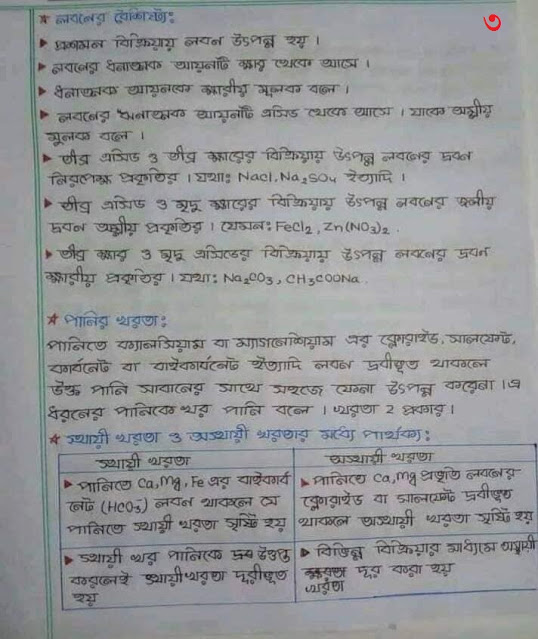 ৩
★ লবনের বৈশিষ্ট্য:
▸ প্রশমন বিক্রিয়ায় লবন উৎপন্ন হয়।
▸ লবনের ধনাত্মক আয়নটি ক্ষার থেকে আসে।
▸ ধনাত্মক আয়নকে ক্ষারীয় মূলক বলে।
▸ লবনের ঋনাত্মক আয়নটি এসিড থেকে আসে। যাকে অম্লীয়
মূলক বলে।
▸ তীব্র এসিড ও তীব্র ক্ষারের বিক্রিয়ায় উৎপন্ন লবনের দ্রবন
নিরপেক্ষ প্রকৃতির। যথা: NaCl, Na₂SO₄ ইত্যাদি।
▸ তীব্র এসিড ও মৃদু ক্ষারের বিক্রিয়ায় উৎপন্ন লবনের জলীয়
দ্রবন অম্লীয় প্রকৃতির। যেমন: FeCl₂, Zn(NO₃)₂.
▸ তীব্র ক্ষার ও মৃদু এসিডের বিক্রিয়ায় উৎপন্ন লবনের দ্রবন
ক্ষারীয় প্রকৃতির। যথা: Na₂CO₃, CH₃COONa.
★ পানির খরতা:
পানিতে ক্যালসিয়াম বা ম্যাগনেশিয়াম এর ক্লোরাইড, সালফেট,
কার্বনেট বা বাইকার্বনেট ইত্যাদি লবন দ্রবীভূত থাকলে
উক্ত পানি সাবানের সাথে সহজে ফেনা উৎপন্ন করেনা। এ
ধরনের পানিকে খর পানি বলে। খরতা 2 প্রকার।
★ স্থায়ী খরতা ও অস্থায়ী খরতার মধ্যে পার্থক্য:
স্থায়ী খরতা
▸ পানিতে Ca, Mg, Fe এর বাইকার্ব
নেট (HCO₃⁻) লবন থাকলে সে
পানিতে স্থায়ী খরতা সৃষ্টি হয়
▸ স্থায়ী খর পানিকে উত্তপ্ত
করলেই স্থায়ী খরতা দূরীভূত
হয়
অস্থায়ী খরতা
▸ পানিতে Ca, Mg প্রভৃতি লবনের
ক্লোরাইড বা সালফেট দ্রবীভূত
থাকলে অস্থায়ী খরতা সৃষ্টি হয়
▸ বিভিন্ন বিক্রিয়ার মাধ্যমে অস্থায়ী
খরতা দূর করা হয়